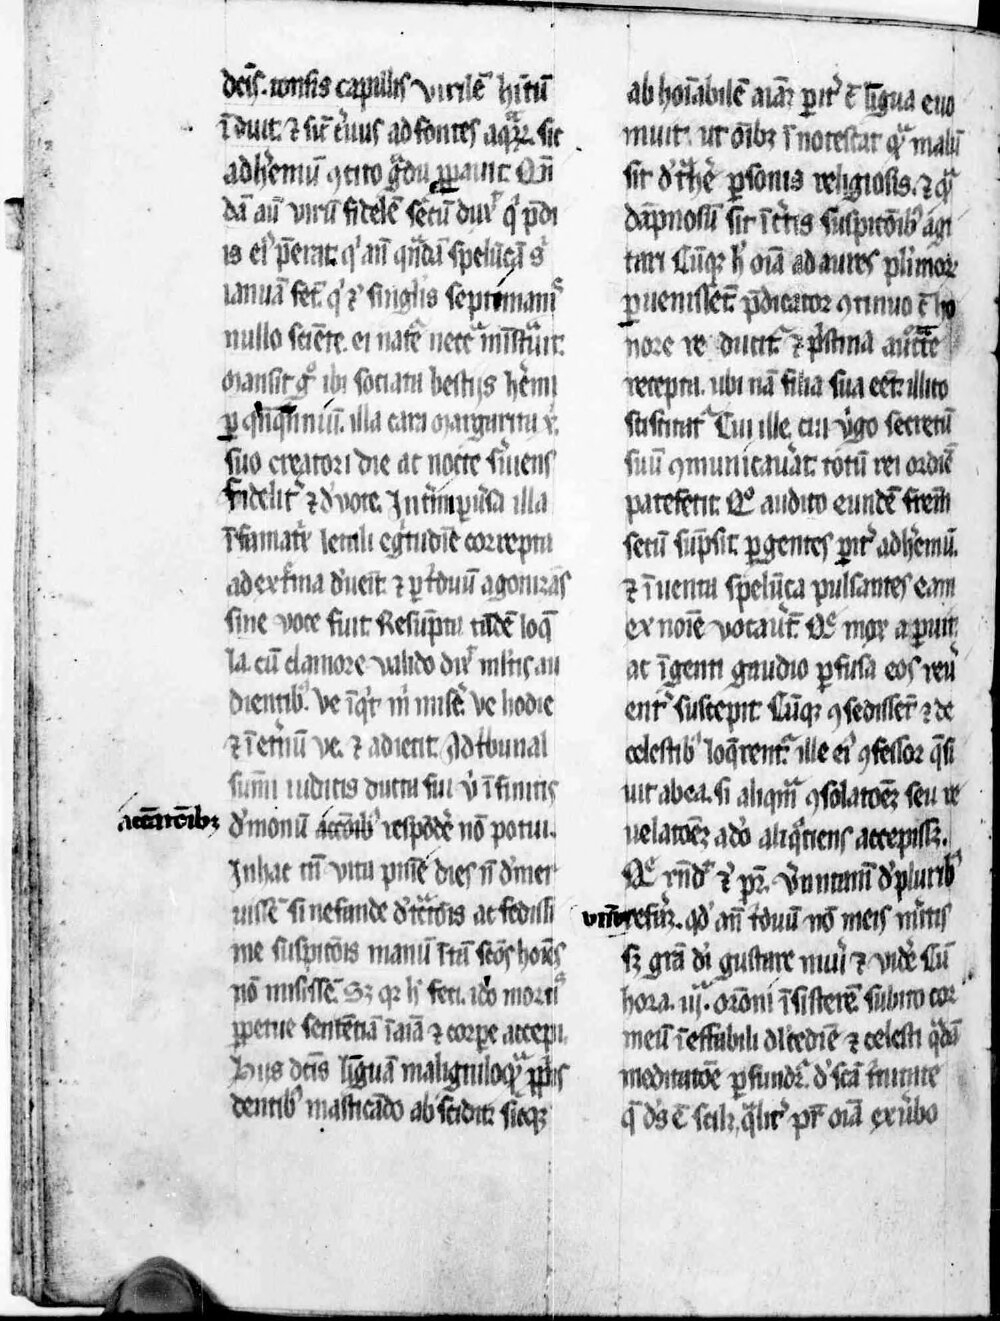 dcīs. tonsis capillis virilē hītū
īduit. ⁊ sic̄ c̓uus ad fontes aqͣꝝ. sic
ad h̓emū ꝯcito gͣdu ꝓꝑauit. Qn̄
dā aūt virū fidelē secū dux̓ qͥ p̄di
is ei p̄erat. qͥ an̄ qn̄dā spelūcā s̓
ianuā fec̄ qͥ ⁊ singl̓is septimanis
nullo sciēte. ei nat̓e nec̄ce mīstͣuit.
Mansit gͦ ibi sociata bestijs h̓emi
ꝑ qͥnqͤnniū. illa cara margarita x̓.
suo creatori die ac nocte s̓uiens
fidelit̓ ⁊ d̓uote. Int̓im ꝑu̓sa illa
īfamat̓x letali eg̓tudīe correpta
ad ext̓ma d̓ueīt. ⁊ ꝑ t̓duū agonizās
sine voce fuit. Resūpta tādē loq̄
la. cū clamore valido dix̓ ml̓tis au
dientibꝰ. Ve īqͥt m̓ mis̓e. ve hodie
⁊ īet̓nū ve. ⁊ adiecit. Ad t̓bunal
sūmi iudicis ducta fui. vͥ īfinitis
accūcōibꝫ
d̓monū accōibꝰ respōd̓e nō potui.
In hac tn̄ vita pn̄sē dies n̄ d̓mer
uissē. si nefande d̓t̓ctōis ac fedissi
me suspitōis manū ī tā scōs hoīes
nō misissē. Sꝫ qr h̓ feci. iō mortis
ꝑpetue sentētiā ī aīa ⁊ corpe accepi.
Hiis dcīs līguā maligniloqͣ ꝓpͥis
dentibꝰ masticādo abscidit. sicqꝫ
ab hoīabilē aīaꝫ parit̓ c̄ līgua euo
muit. ut oībꝫ īnotescat qͣ malū
sit d̓t̓he ꝑsonis religiosis. ⁊ qͣ
dāpnosū sit īc̓tis suspitōibꝰ agi
tari. Cūqꝫ h̓ oīa ad aures pl̓imoꝝ
ꝑuenissēt. p̄dicator ꝯtinuo c̄ ho
nore reducit̓. ⁊ pͥstina auctͣte
recepta. ubi nā filia sua eēt. illico
sciscitat̓. Cui ille. cui v̓go secretū
suū ꝯmunicau̓at. totū rei ordīē
patefecit. Qͦ audito eundē frēm
secū sūpsit. ꝑgentes parit̓ ad h̓emū.
⁊ īuenta spelūca pulsantes eam
ex noīe vocau̓t. Qͤ mox aꝑuit
ac īgenti gaudio ꝑfusa eos reu̓
ent̓ suscepit. Cūqꝫ ꝯsedissēt ⁊ de
celestibꝰ loq̄rent̓. ille ei ꝯfessor q̄si
uit ab ea. si aliqͣm ꝯsolatōeꝫ seu re
uelatōeꝫ a dō aliqͦciens accepissꝫ.
Qͤ rn̄d̓ ⁊ pr̄. vnū tm̄ d̓ pluribꝰ
vnū
refer̄. qd̓ an̄ t̓duū nō meis m̓itis
sꝫ grā di gustare mui ⁊ vid̓e. Cū
hora. iij. orōni īsisterē. subito cor
meū īeffabili dl̓cedīe ⁊ celesti qͣdā
meditatōe ꝑfundr̄. d̓ scā t̓nitate
q̄ ds̄ ē scilꝫ. qͣlit̓ pr̄ oīa ex v̓bo